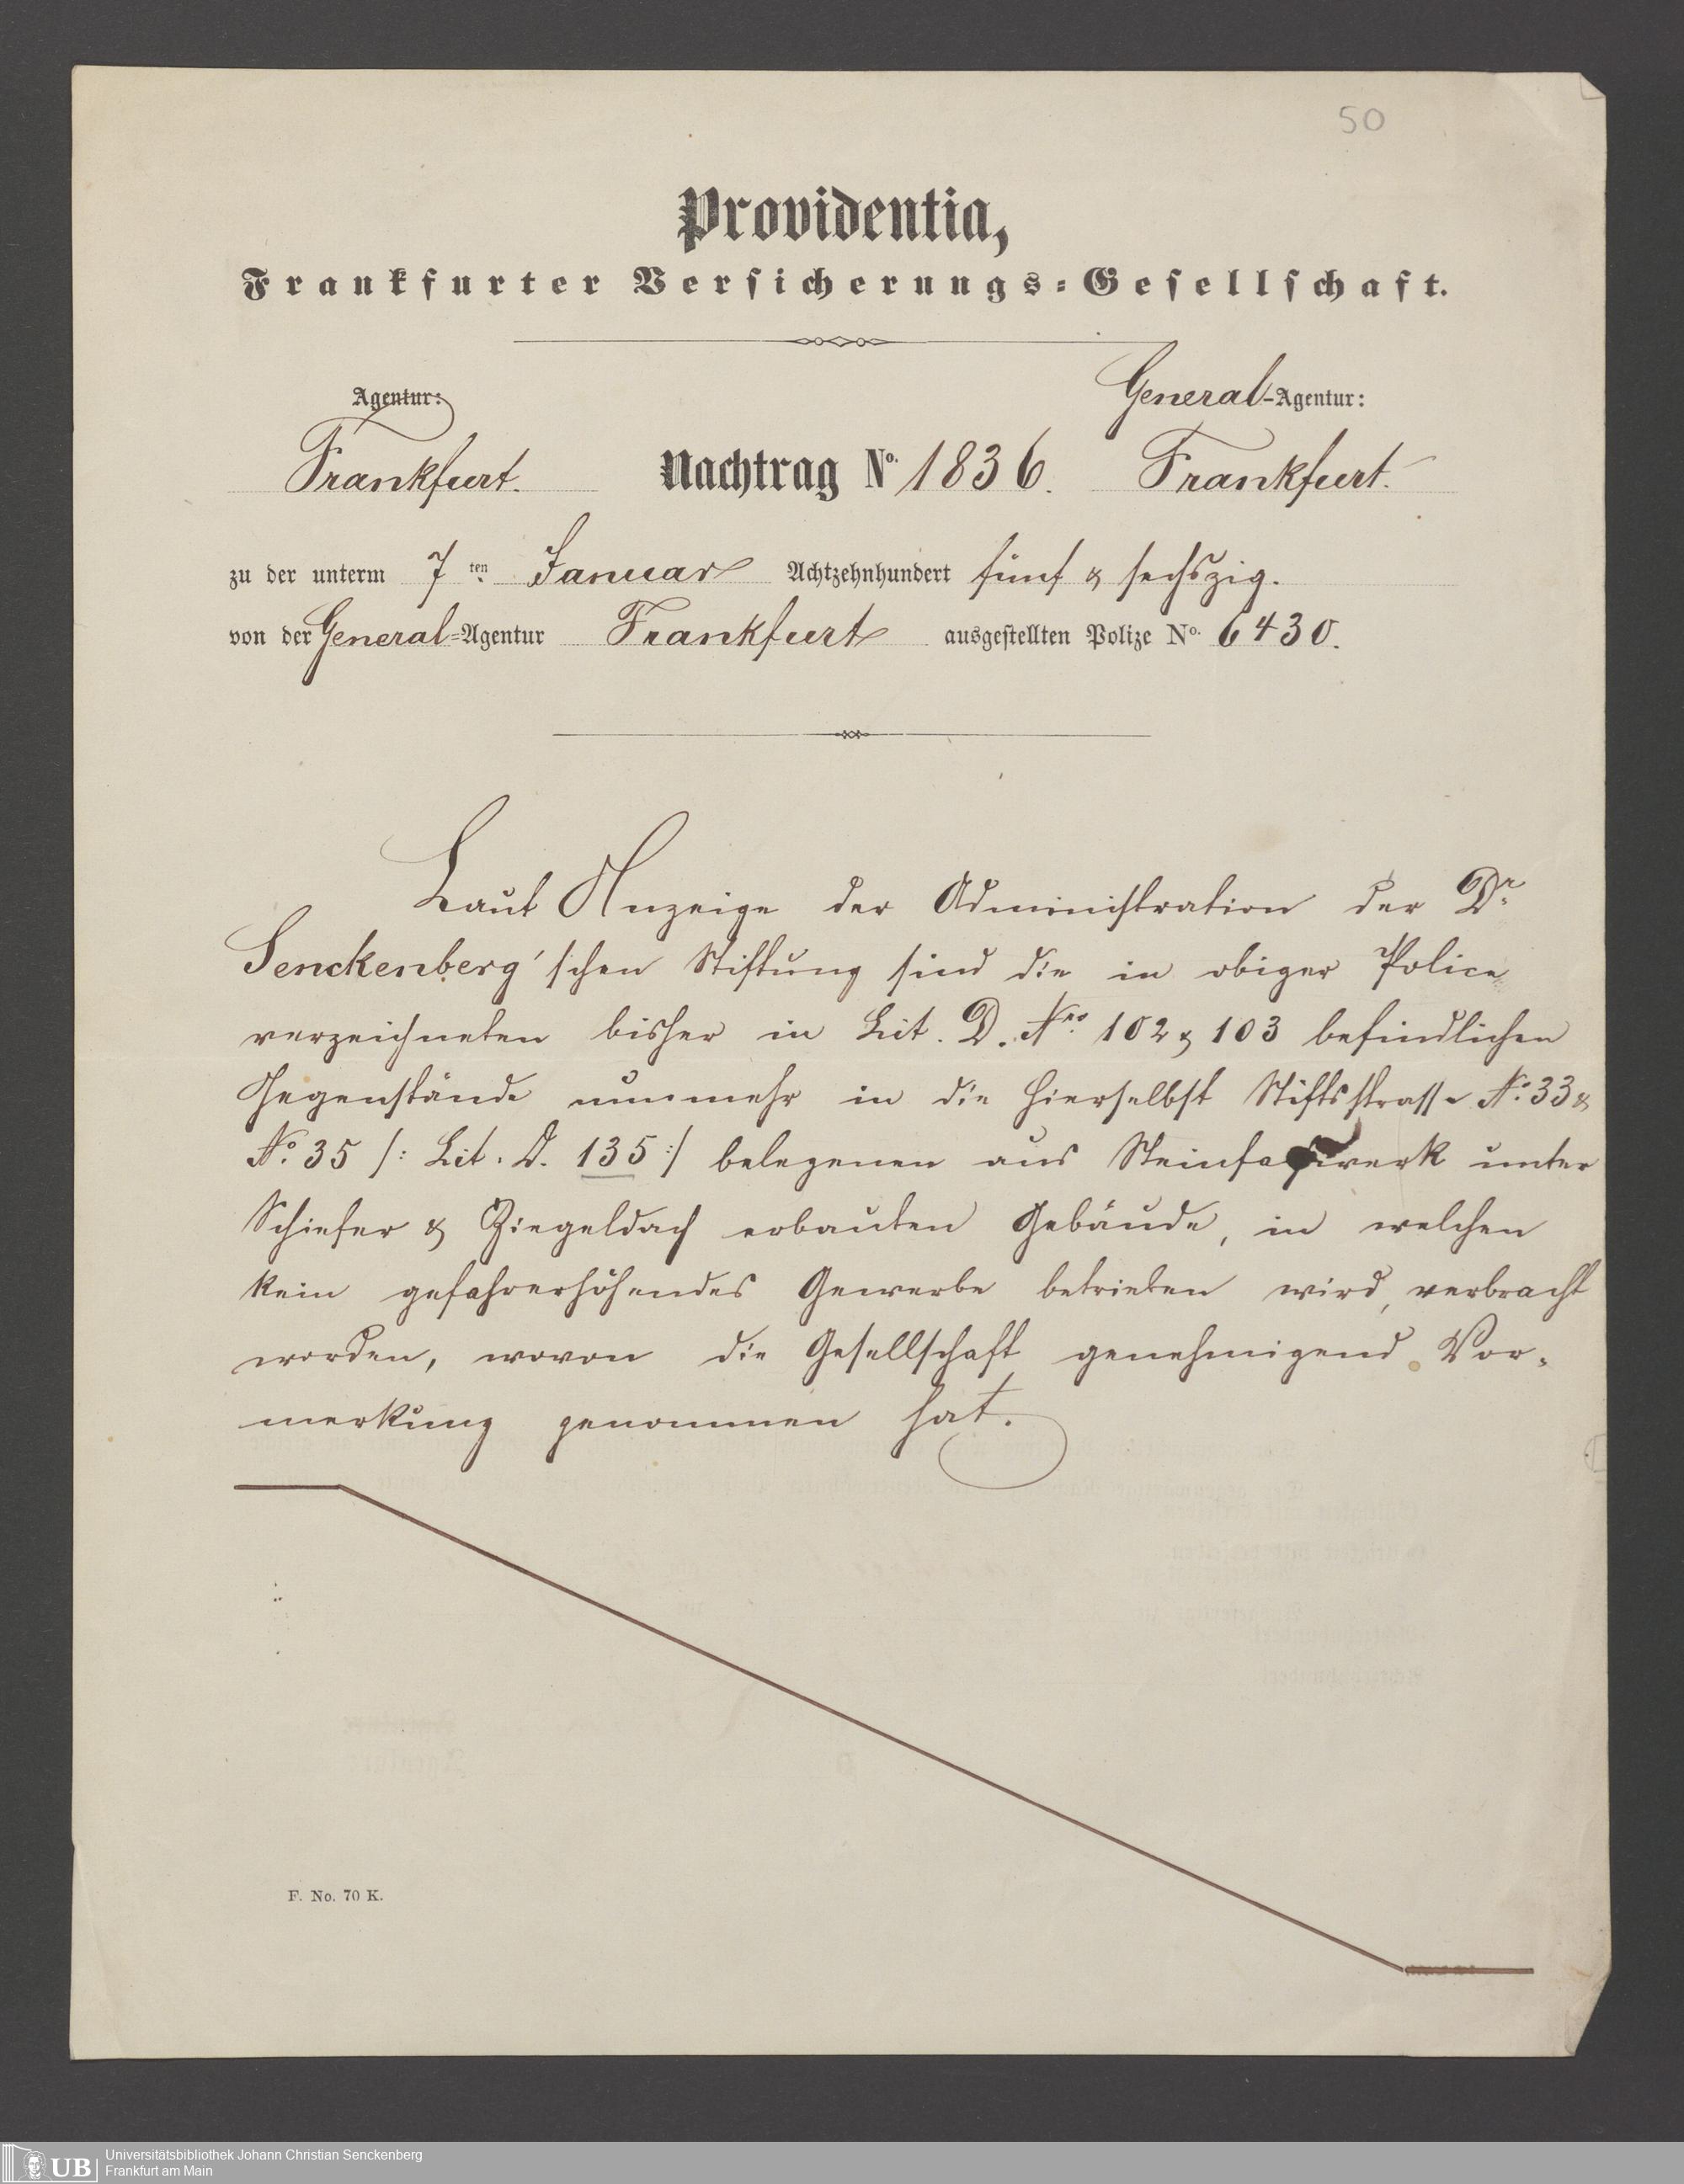 50
Providentia,
Frankfurter Versicherungs-Gesellschaft.
Agentur: General-Agentur:
Frankfurt. Nachtrag No. 1836. Frankfurt.
zu der unterm 7ten Januar Achtzehnhundert fünf & sechszig.
von der General-Agentur Frankfurt ausgestellten Polize No. 6430.
Laut Anzeige der Administration der Dr.
Senckenberg'schen Stiftung sind die in obiger Police
verzeichneten bisher in Lit. D. Nro. 102 & 103 befindlichen
Gegenstände nunmehr in die hierselbst Stiftsstrasse No. 33 &
No. 35 /: Lit. D. 135 :/ belegenen aus Steinfachwerk unter
Schiefer & Ziegeldach erbauten Gebäude, in welchen
kein gefahrerhöhendes Gewerbe betrieben wird, verbracht
worden, wovon die Gesellschaft genehmigend Vor-
merkung genommen hat.
F. No. 70 K.
UB Universitätsbibliothek Johann Christian Senckenberg
Frankfurt am Main